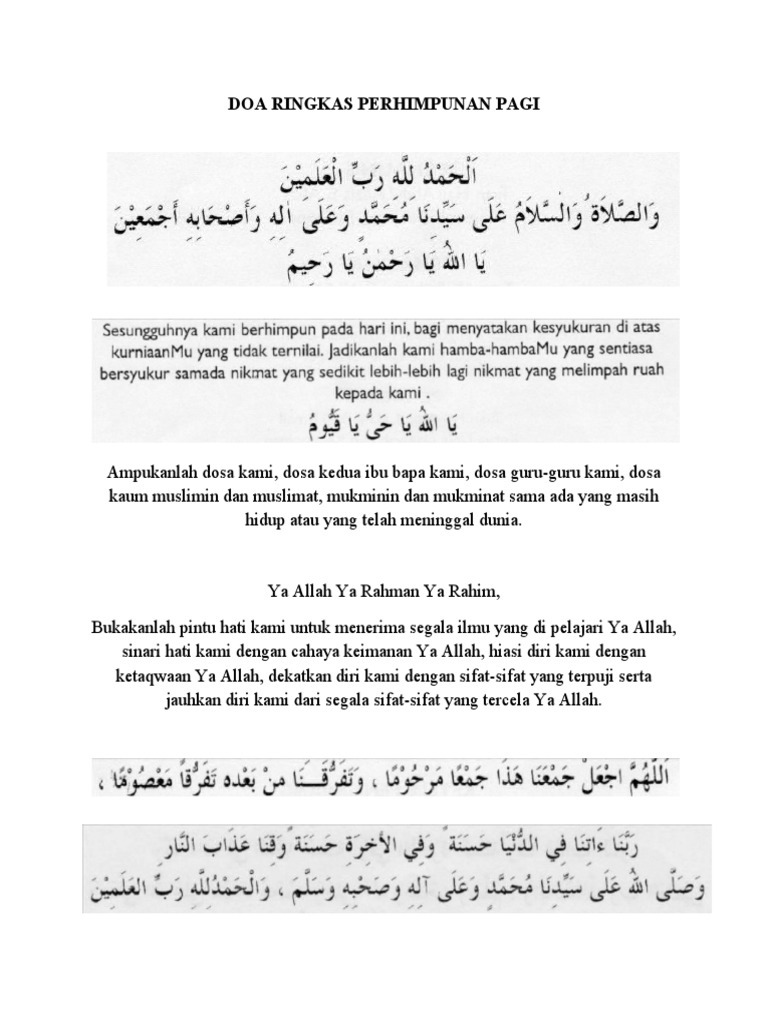 DOA RINGKAS PERHIMPUNAN PAGI
اَلْحَمْدُ لِلَّهِ رَبِّ الْعَلَمِيْنَ
وَالصَّلاَةُ وَالسَّلاَمُ عَلَى سَيِّدِنَا مُحَمَّدٍ وَعَلَى اٰلِهِ وَأَصْحَابِهِ أَجْمَعِيْنَ
يَا اللهُ يَا رَحْمٰنُ يَا رَحِيمُ
Sesungguhnya kami berhimpun pada hari ini, bagi menyatakan kesyukuran di atas
kurniaanMu yang tidak ternilai. Jadikanlah kami hamba-hambaMu yang sentiasa
bersyukur samada nikmat yang sedikit lebih-lebih lagi nikmat yang melimpah ruah
kepada kami .
يَا اللهُ يَا حَيُّ يَا قَيُّومُ
Ampukanlah dosa kami, dosa kedua ibu bapa kami, dosa guru-guru kami, dosa
kaum muslimin dan muslimat, mukminin dan mukminat sama ada yang masih
hidup atau yang telah meninggal dunia.
Ya Allah Ya Rahman Ya Rahim,
Bukakanlah pintu hati kami untuk menerima segala ilmu yang di pelajari Ya Allah,
sinari hati kami dengan cahaya keimanan Ya Allah, hiasi diri kami dengan
ketaqwaan Ya Allah, dekatkan diri kami dengan sifat-sifat yang terpuji serta
jauhkan diri kami dari segala sifat-sifat yang tercela Ya Allah.
اَللّٰهُمَّ اجْعَلْ جَمْعَنَا هَذَا جَمْعًا مَرْحُوْمًا ، وَتَفَرُّقَـــنَا مِنْ بَعْدِهِ تَفَرُّقاً مَعْصُوْمًا ،
رَبَّنَا ءَاتِنَا فِي الدُّنْيَا حَسَنَةً وَفِي الأَخِرَةِ حَسَنَةً وَقِنَا عَذَابَ النَّارِ
وَصَلَّى اللهُ عَلَى سَيِّدِنَا مُحَمَّدٍ وَعَلَى آلِهِ وَصَحْبِهِ وَسَلَّمَ ، وَالْحَمْدُلِلَّهِ رَبِّ العَلَمِيْنَ